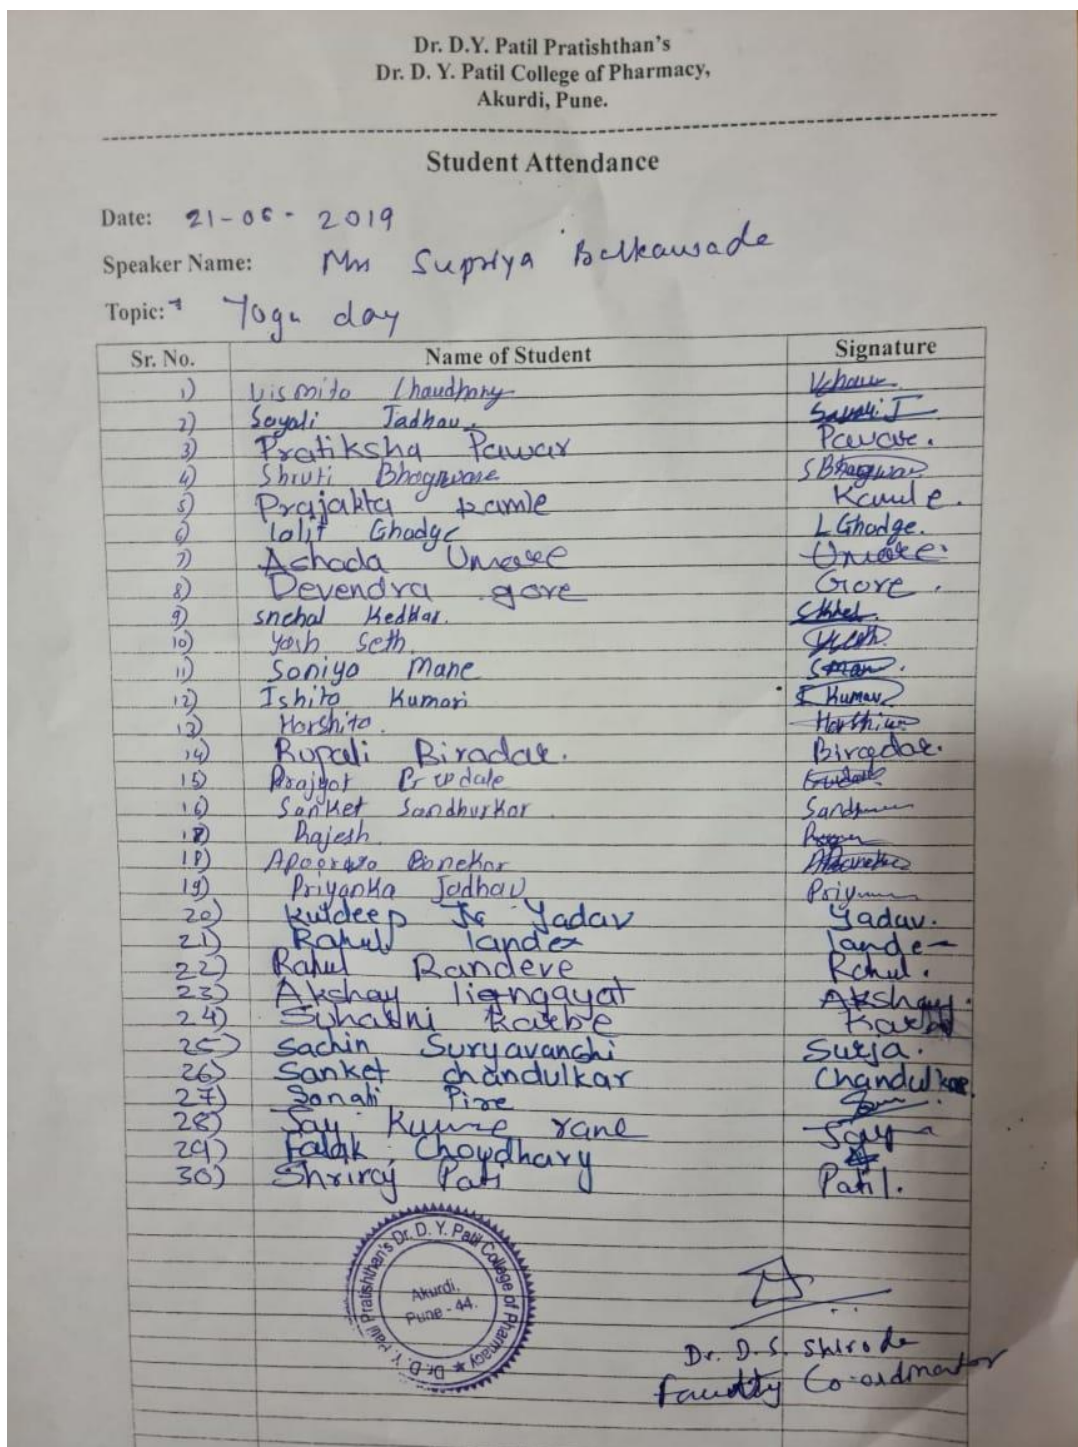 Dr. D.Y. Patil Pratishthan's
Dr. D. Y. Patil College of Pharmacy,
Akurdi, Pune.
Student Attendance
Date: 21-06-2019
Speaker Name: Mrs Supriya
Topic: Yoga day
Sr. No. Name of Student Signature
1) Vismita Chaudhary
2) Sayali Jadhav. Sayali J
3) Pratiksha Pawar Pawar.
4) Shruti SBhagwar
5) Prajakta kamle Kamle.
6) lalit Ghadge L Ghadge.
7) Umare Umare.
8) Devendra gore Gore.
9) snehal Kedkar.
10) Yash Seth
11) Soniya Mane SMane.
12) Ishita Kumari I Kumari
13) Harshita. Harshita
14) Rupali Biradar. Biradar.
15)
16) Sanket Sandhurkar
Rajesh
18) Banekar
19) Priyanka Jadhav
20) Kuldeep Yadav Yadav.
21) Rahul lande
22) Rahul Randeve Rahul.
23) Akshay liengayat Akshay.
24) Karbe
25) Sachin Suryavanchi Surja.
26) Sanket chandulkar Chandulkar.
27) Sonali Pire
28) rane
29) Falak Choydhary
30) Shriraj Pati Patil.
Dr. D. Y. Patil Pratishthan's Dr. D. Y. Patil College of Pharmacy
Akurdi,
Pune - 44.
Dr. D. S. Shirode
Faculty Co-ordinator